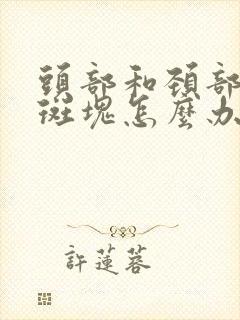 頭部和頚部
斑塊怎麼办
許蓮蓉